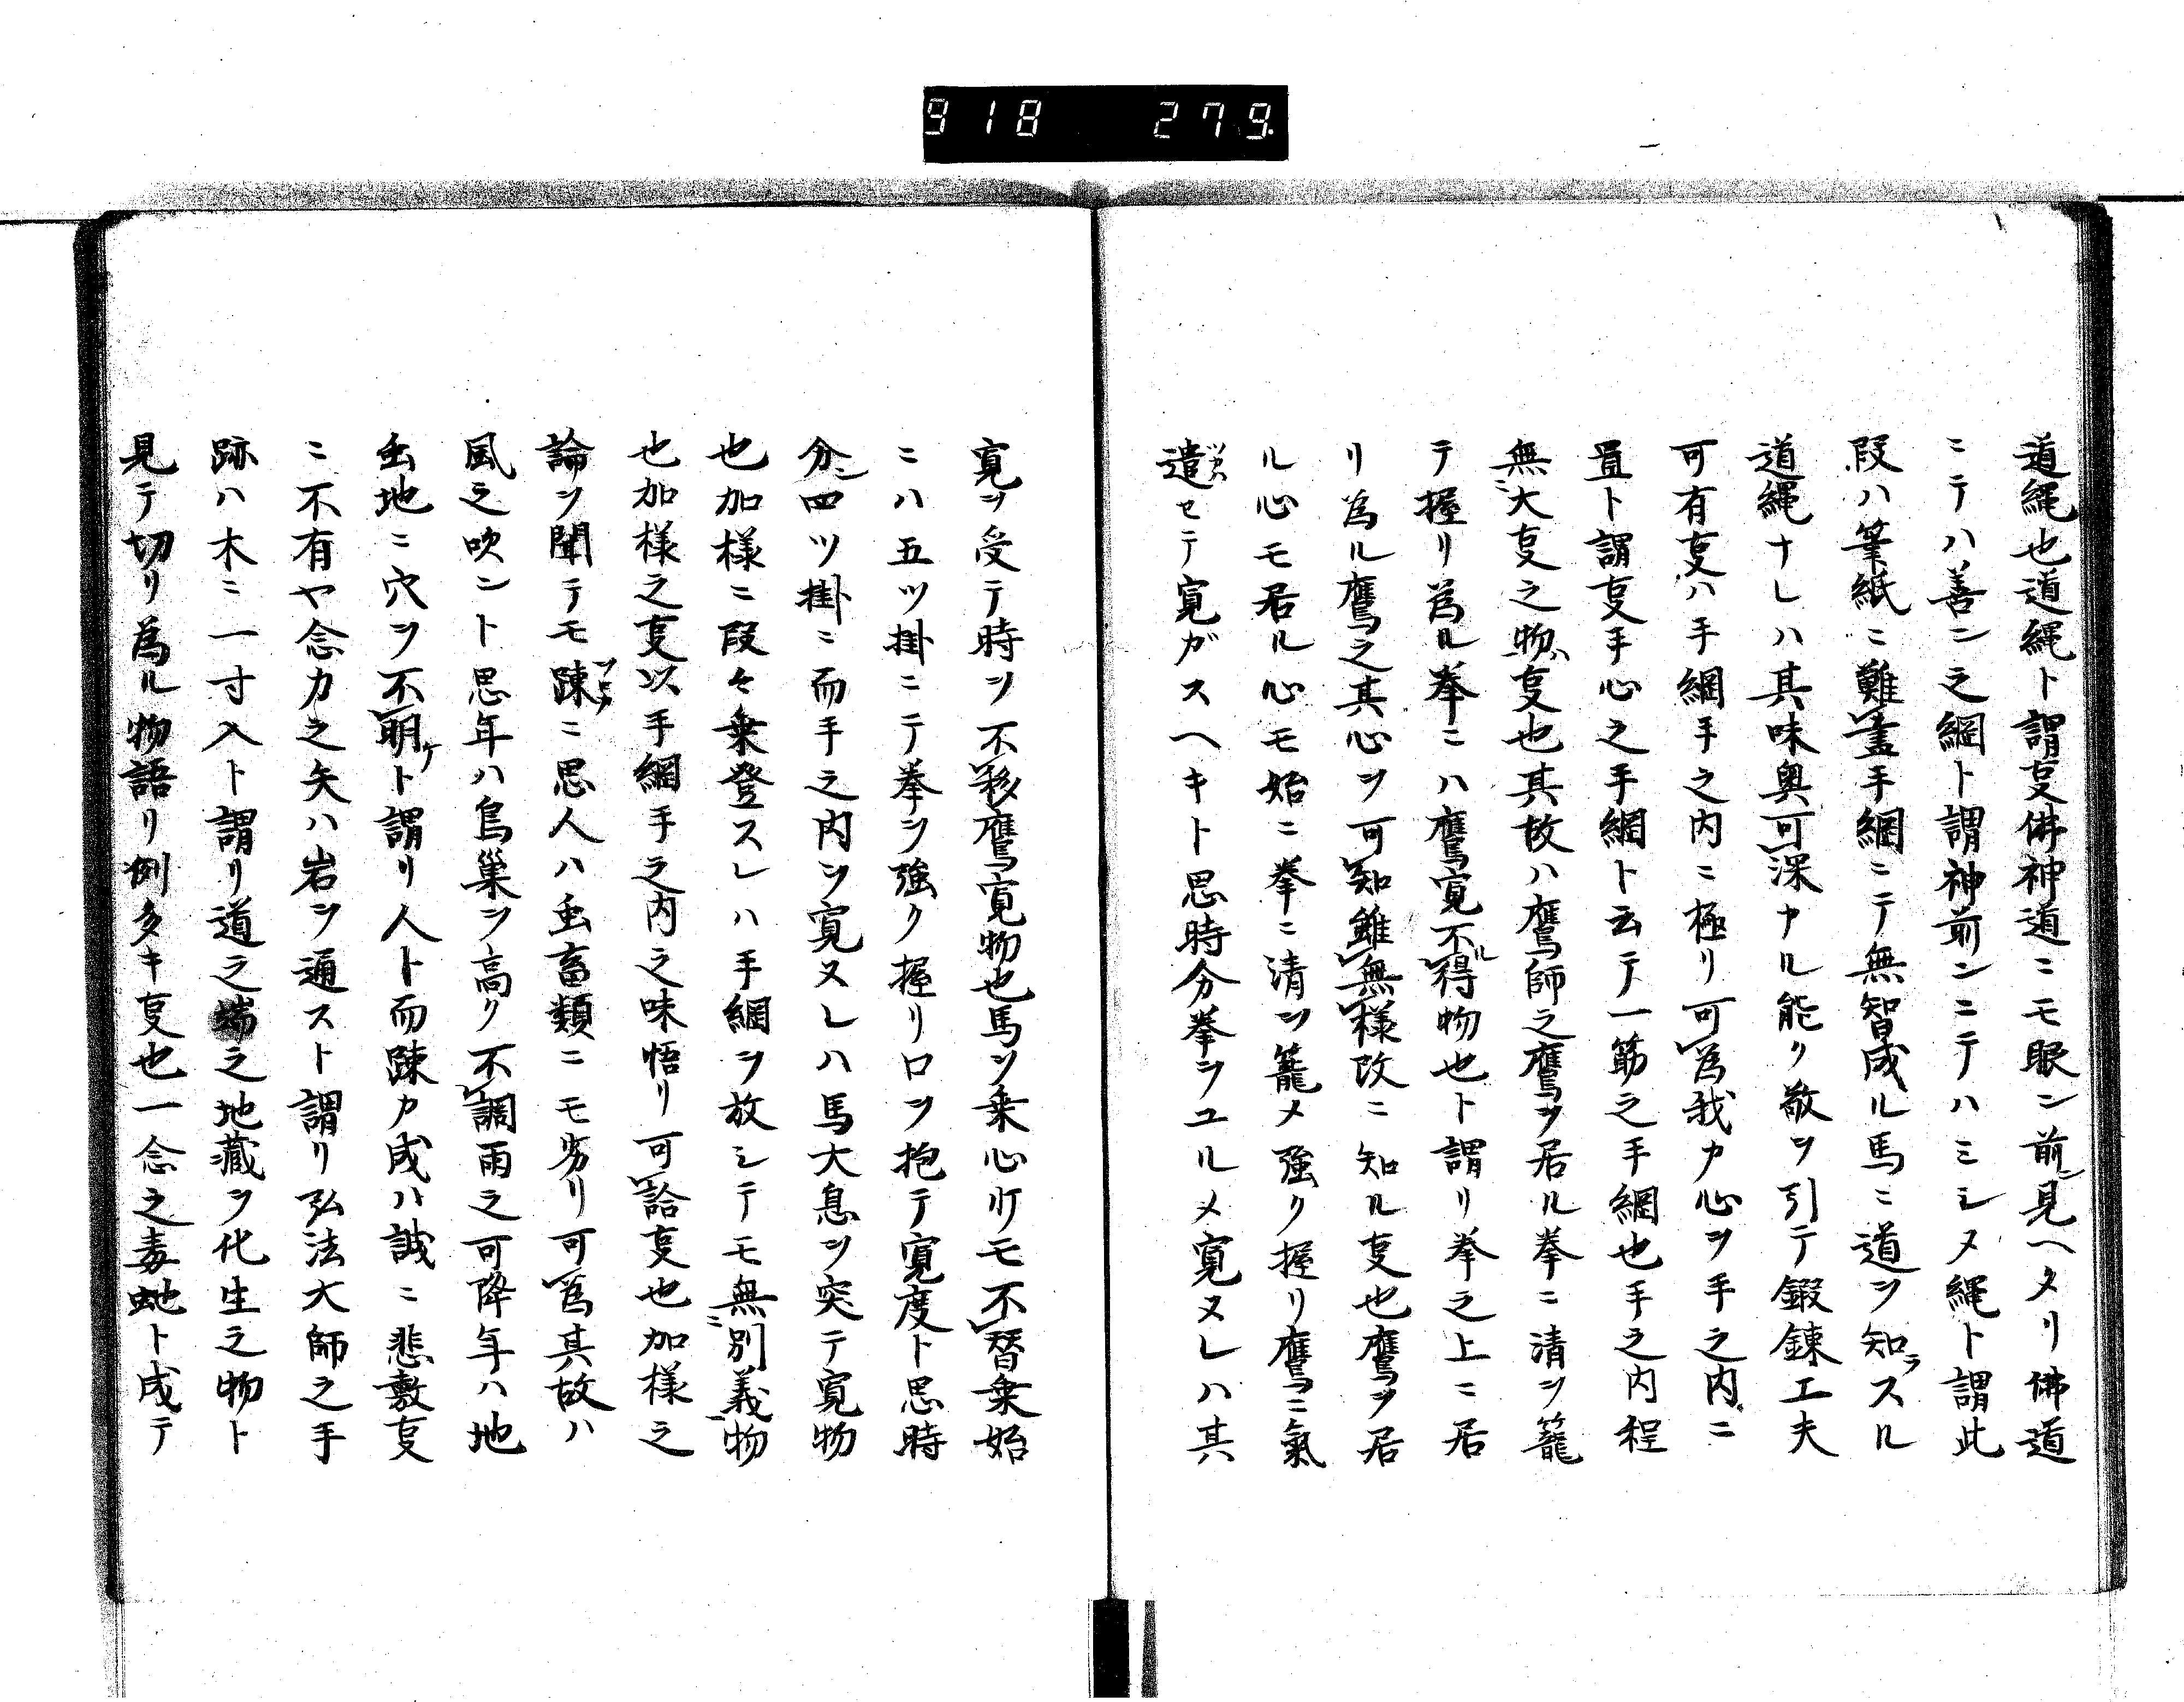 918 279
道縄也道縄ト謂㕝佛神道ニモ眼ン前ニ見ヘタリ佛道
ニテハ善ン之綱ト謂神前ンニテハミシメ縄ト謂此
段ハ筆紙ニ難盡手綱ニテ無智成ル馬ニ道ヲ知ラスル
道縄ナレハ其味奥可深ナル能ク敬ヲ引テ鍛錬工夫
可有㕝ハ手綱手之内ニ極リ可為我カ心ヲ手之内ニ
置ト謂㕝手心之手綱ト云テ一筋之手綱也手之内程
無ニ大㕝之物ハ㕝也其故ハ鷹師之鷹ヲ居ル拳ニ清ヲ籠
テ握リ為ル拳ニハ鷹寛不ル得物也ト謂リ拳之上ニ居
リ為ル鷹之其心ヲ可知雖無様改ニ知ル㕝也鷹ヲ居
ル心モ居ル心モ始ニ拳ニ清ヲ籠メ強ク握リ鷹ニ氣
遣セテ寛ガスヘキト思時分拳ヲユルメ寛ヌレハ其
寛ヲ受テ時ヲ不移鷹寛物也馬ヲ乗心リモ不替乗始
ニハ五ツ掛ニテ拳ヲ強ク握リ口ヲ抱テ寛度ト思時
分ニ四ツ掛ニ而手之内ヲ寛ヌレハ馬大息ヲ突テ寛物
也加様ニ段々乗登スレハ手綱ヲ放シテモ無ニ別義物
也加様之㕝以手綱手之内之味悟リ可詥㕝也加様之
論ヲ聞テモ踈ニ思人ハ虫畜類ニモ劣リ可為其故ハ
風之吹ント思年ハ鳥巣ヲ高ク不調雨之可降年ハ地
虫地ニ穴ヲ不明ケト謂リ人ト而踈カ成ハ誠ニ悲敷㕝
ニ不有ヤ念力之矢ハ岩ヲ通スト謂リ弘法大師之手
跡ハ木ニ一寸入ト謂リ道之端之地蔵ヲ化生之物ト
見テ切リ為ル物語リ例多キ㕝也一念之毒虵ト成テ